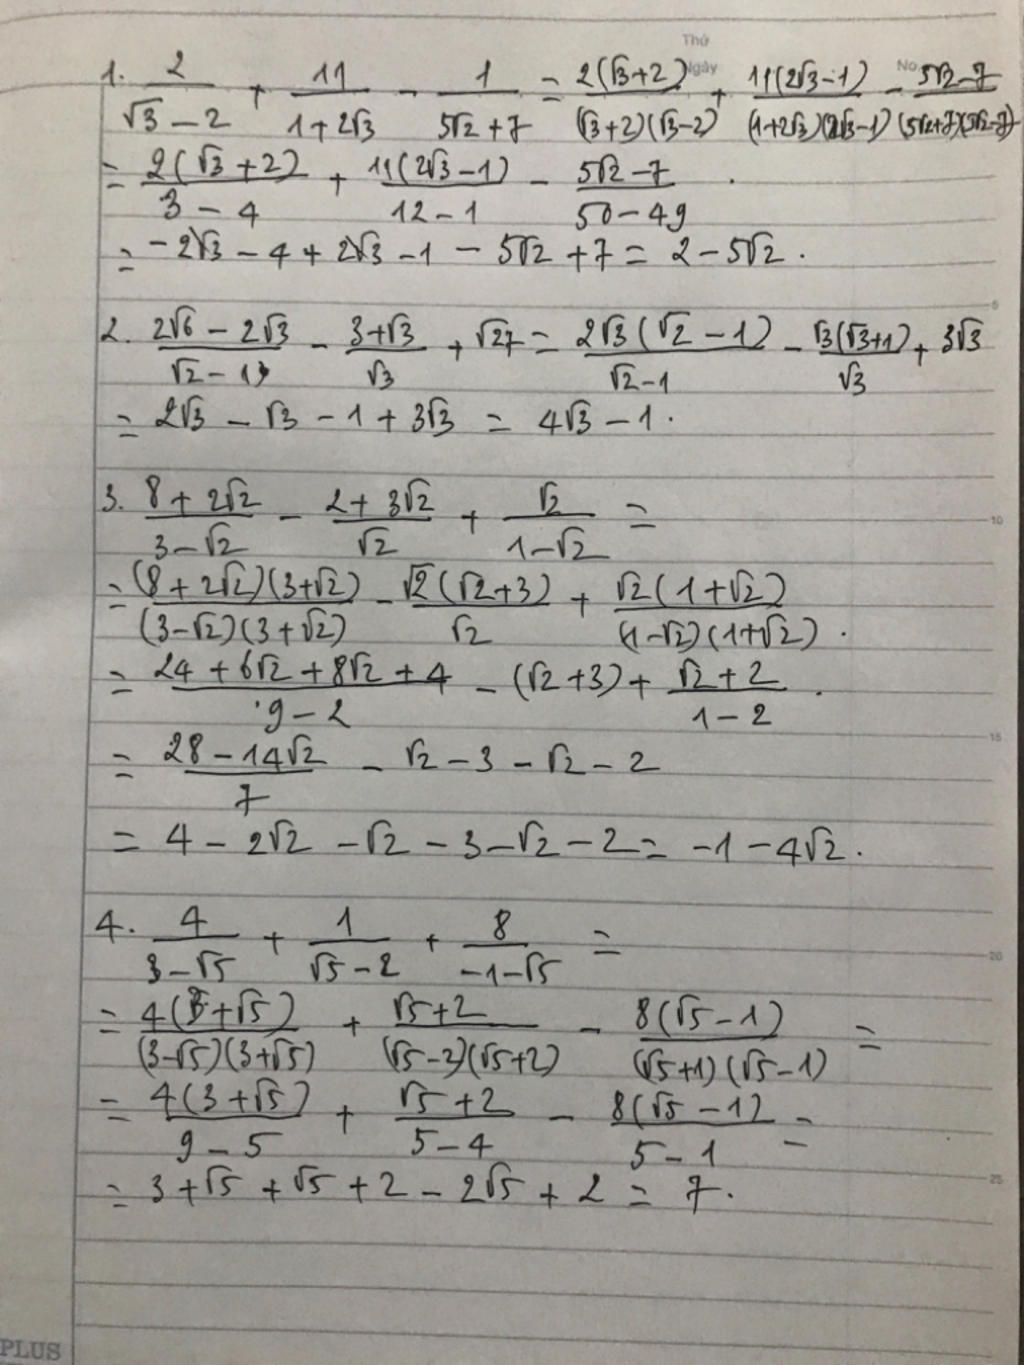 Thứ
Ngày No
1. 2/(√3 − 2) + 11/(1 + 2√3) − 1/(5√2 + 7) = 2(√3+2)/((√3+2)(√3−2)) + 11(2√3−1)/((1+2√3)(2√3−1)) − (5√2−7)/((5√2+7)(5√2−7))
= 2(√3+2)/(3 − 4) + 11(2√3−1)/(12 − 1) − (5√2−7)/(50 − 49) .
= −2√3 − 4 + 2√3 − 1 − 5√2 + 7 = 2 − 5√2 .
5
2. (2√6 − 2√3)/(√2 − 1) − (3+√3)/√3 + √27 = 2√3(√2 − 1)/(√2−1) − √3(√3+1)/√3 + 3√3
= 2√3 − √3 − 1 + 3√3 = 4√3 − 1 .
3. (8 + 2√2)/(3 − √2) − (2 + 3√2)/√2 + √2/(1−√2) =
10
= (8 + 2√2)(3+√2)/((3−√2)(3+√2)) − √2(√2+3)/√2 + √2(1+√2)/((1−√2)(1+√2)) .
= (24 + 6√2 + 8√2 + 4)/(9 − 2) − (√2+3) + (√2+2)/(1 − 2) .
15
= (28 − 14√2)/7 − √2 − 3 − √2 − 2
= 4 − 2√2 − √2 − 3 − √2 − 2 = −1 − 4√2 .
4. 4/(3 − √5) + 1/(√5 − 2) + 8/(−1−√5) =
20
= 4(3+√5)/((3−√5)(3+√5)) + (√5+2)/((√5−2)(√5+2)) − 8(√5−1)/((√5+1)(√5−1)) =
= 4(3+√5)/(9 − 5) + (√5+2)/(5 − 4) − 8(√5−1)/(5 − 1) =
25
= 3 + √5 + √5 + 2 − 2√5 + 2 = 7 .
PLUS